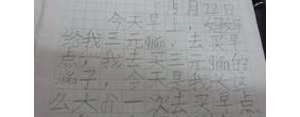 月22日
今天早上，
给我三元师，去买早
点，我去买三元师的
汤子，今天是我长这
么大介一次去买早点